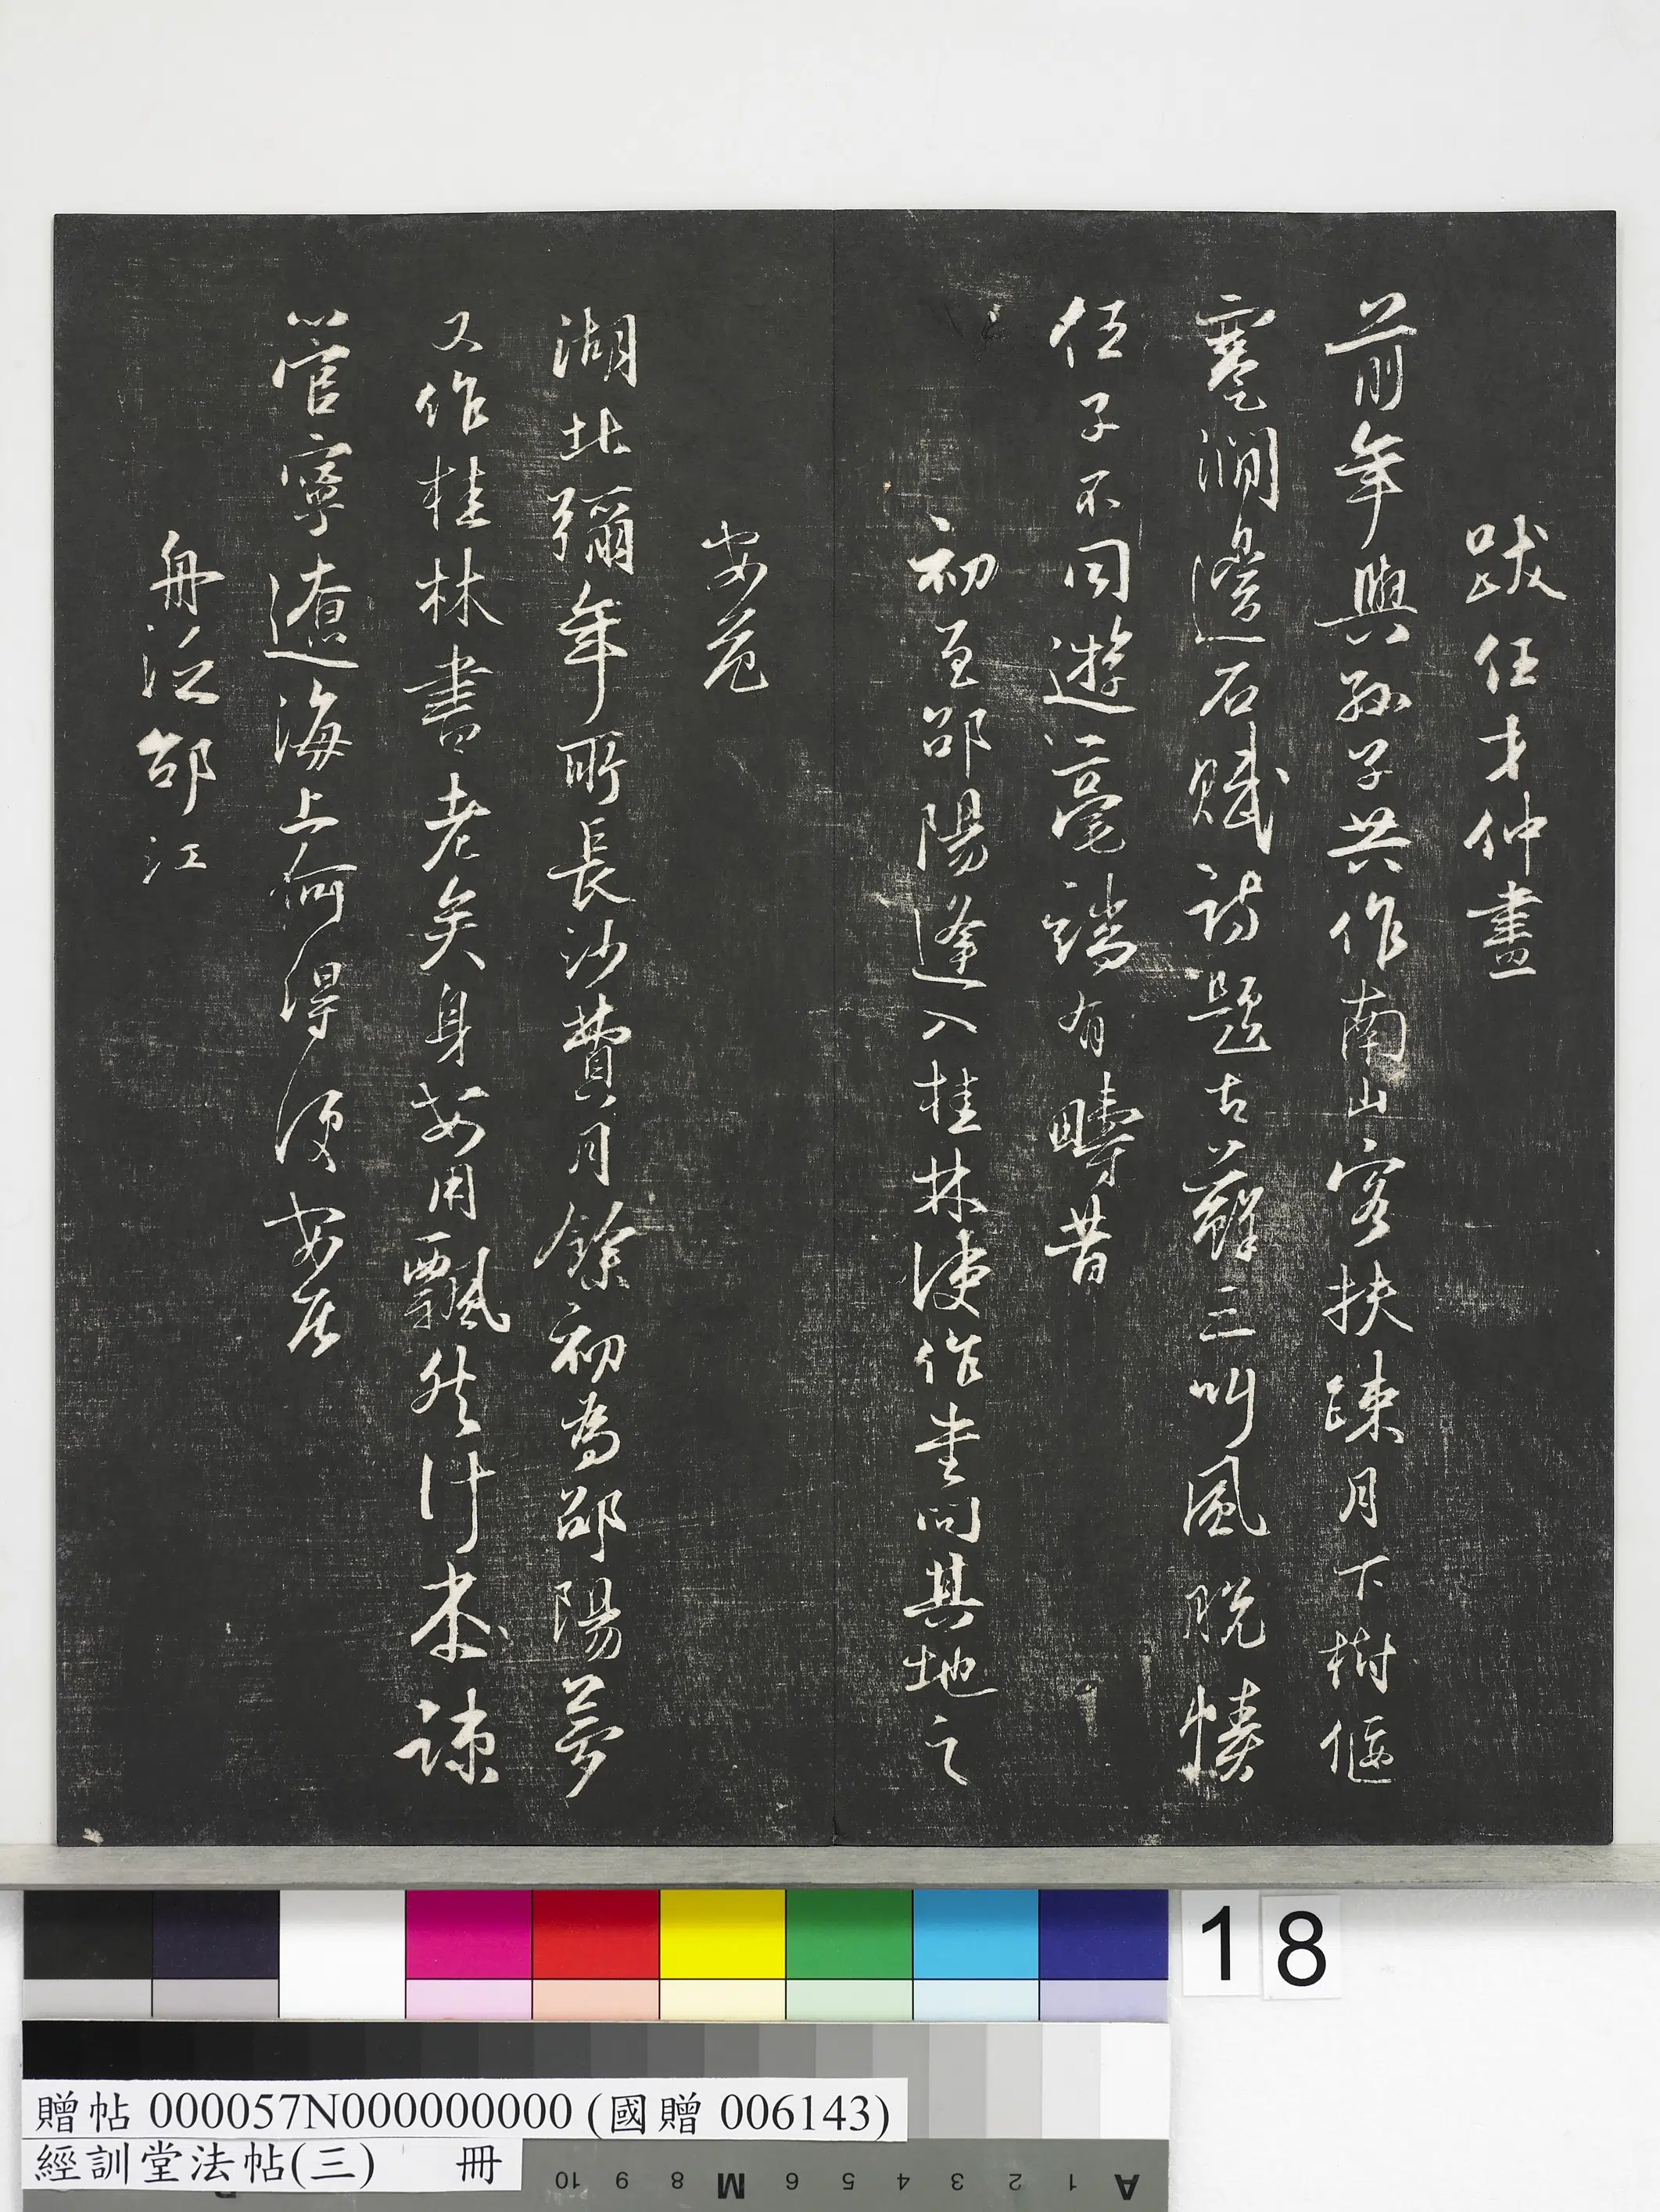 跋任才仲畫
前年與孫子共作南山客扶疎月下樹偃
蹇澗邊石賦詩題古蘚三叫風脫幘
任子不同遊毫端有疇昔
初至邵陽逢入桂林使作書問其地之
安危
湖北彌年所長沙費月餘初為邵陽夢
又作桂林書老矣身安用飄然計本疎
管寧遼海上何得便安居
舟泛邵江
18
贈帖 000057N000000000 (國贈 006143)
經訓堂法帖(三) 冊
10 9 8 M 6 5 4 3 2 1 A